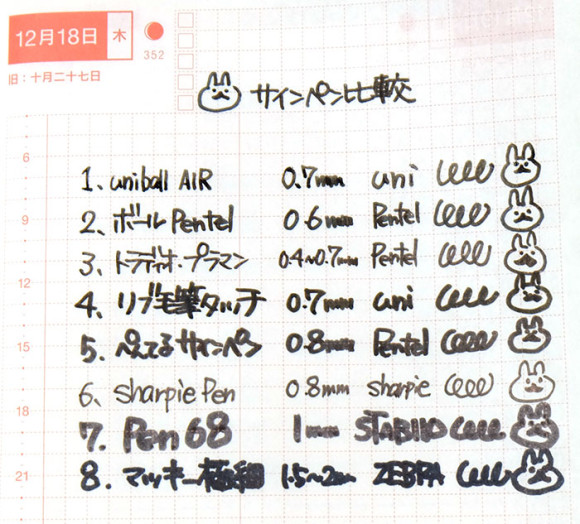 12月18日 木
352
旧：十月二十七日
サインペン比較
6
1. uniball AIR 0.7mm uni
9
2. ボールPentel 0.6mm Pentel
3. トラディオ・プラマン 0.4~0.7mm Pentel
12
4. リブ毛筆タッチ 0.7mm uni
15
5. ぺんてるサインペン 0.8mm Pentel
6. sharpie Pen 0.8mm sharpie
18
7. Pen 68 1mm STABILO
21
8. マッキー極細 1.5~2mm ZEBRA